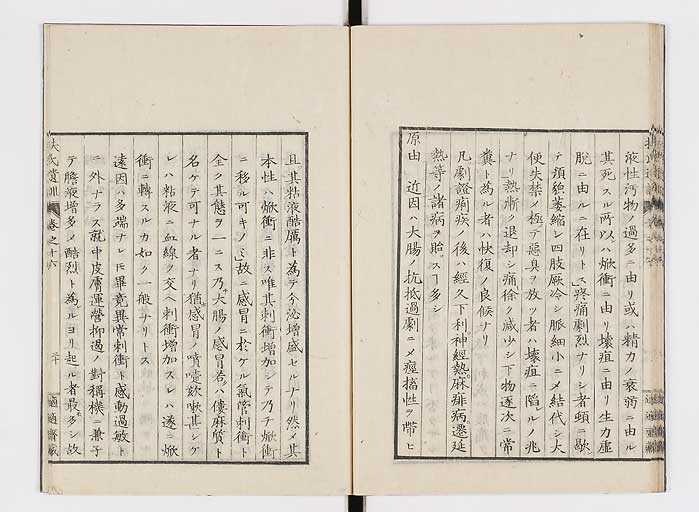 液性汚物ノ過多ニ由リ或ハ精力ノ衰弱ニ由ル
其死スル所以ハ焮衝ニ由リ壊疽ニ由リ生力虚
脱ニ由ルニ在リトス疼痛劇烈ナリシ者頓ニ歇
テ顔貌萎縮シ四肢厥冷シ脈細小ニメ結代シ大
便失禁メ極テ悪臭ヲ放ツ者ハ壊疽ニ陥ルノ兆
ナリ熱漸ク退却シ痛徐ク減少シ下物逐次ニ常
糞ト為ル者ハ快復ノ良候ナリ
凡劇證痢疾ノ後ハ經久下利神經熱麻痺病遷延
熱等ノ諸病ヲ貽スヿ多シ
原由 近因ハ大腸ノ抗抵過劇ニメ痙攣性ヲ帶ヒ
且其粘液酷厲ト為テ分泌増盛セルナリ然メ其
本性ハ焮衝ニ非ス唯其刺衝増加シテ乃チ焮衝
ニ移ル可キノミ故ニ感冒ニ於ケル氣管刺衝ト
全ク其態ヲ一ニス乃チ大腸ノ感冒若クハ僂麻質ト
名ケテ可ナル者ナリ猶感冒ノ噴嚔欬嗽其シケ
レハ粘液ニ血線ク交ヘ刺衝増加スレハ遂ニ焮
衝ニ轉スルカ如ク一般ナリトス
遠因ハ多端ナレ𪜈畢竟異常刺衝ト感動過敏ト
ニ外ナラス就中皮膚運營抑遏ノ對稱機ニ兼子
テ膽液増多シ酷烈ト為ルヨリ起ル者最多シ故
扶氏遺訓 巻之十六 二十 適適齋藏